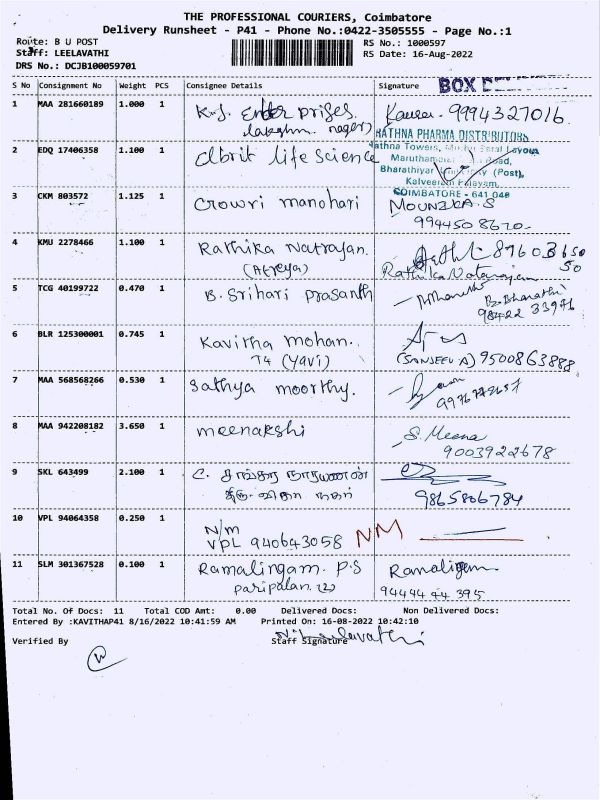 THE PROFESSIONAL COURIERS, Coimbatore
Delivery Runsheet - P41 - Phone No.:0422-3505555 - Page No.:1
Route: B U POST
RS No.: 1000597
Staff: LEELAVATHI
RS Date: 16-Aug-2022
DRS No.: DCJB100059701
S No Consignment No Weight PCS Consignee Details Signature
BOX
1 MAA 281660189 1.000 1 K.J. Enter prises. 9994327016.
lakshmi nagar)
RATHNA PHARMA DISTRIBUTORS
Rathna Towers, Layout
2 EDQ 17406358 1.100 1 Elbrit life Science
Maruthamalai Road,
Bharathiyar (Post),
Kalveeram Palayam,
COIMBATORE - 641 046
3 CKM 803572 1.125 1 Gowri manohari MOUNIKA.S
9944508670-
4 KMU 2278466 1.100 1 Rathika Natrajan. 8760 3650
(Atreya) Rathika Natarajan 50
5 TCG 40199722 0.470 1 B. Srihari prasanth B. Bharathi
98422 33976
6 BLR 125300001 0.745 1 Kavitha mohan.
T4 (Yavi) (SANJEEV A) 9500863888
7 MAA 568568266 0.530 1 Sathya moorthy.
8 MAA 942208182 3.650 1 meenakshi S. Meena
9003922678
9 SKL 643499 2.100 1 C. சங்கர நாராயணன்
நகர் 9865806784
10 VPL 94064358 0.250 1 N/m NM
VPL 940643058
11 SLM 301367528 0.100 1 Ramalingam. P.S Ramalingam
paripalan (2) 9444444395
Total No. Of Docs: 11 Total COD Amt: 0.00 Delivered Docs: Non Delivered Docs:
Entered By :KAVITHAP41 8/16/2022 10:41:59 AM Printed On: 16-08-2022 10:42:10
N. Leelavathi
Verified By Staff Signature